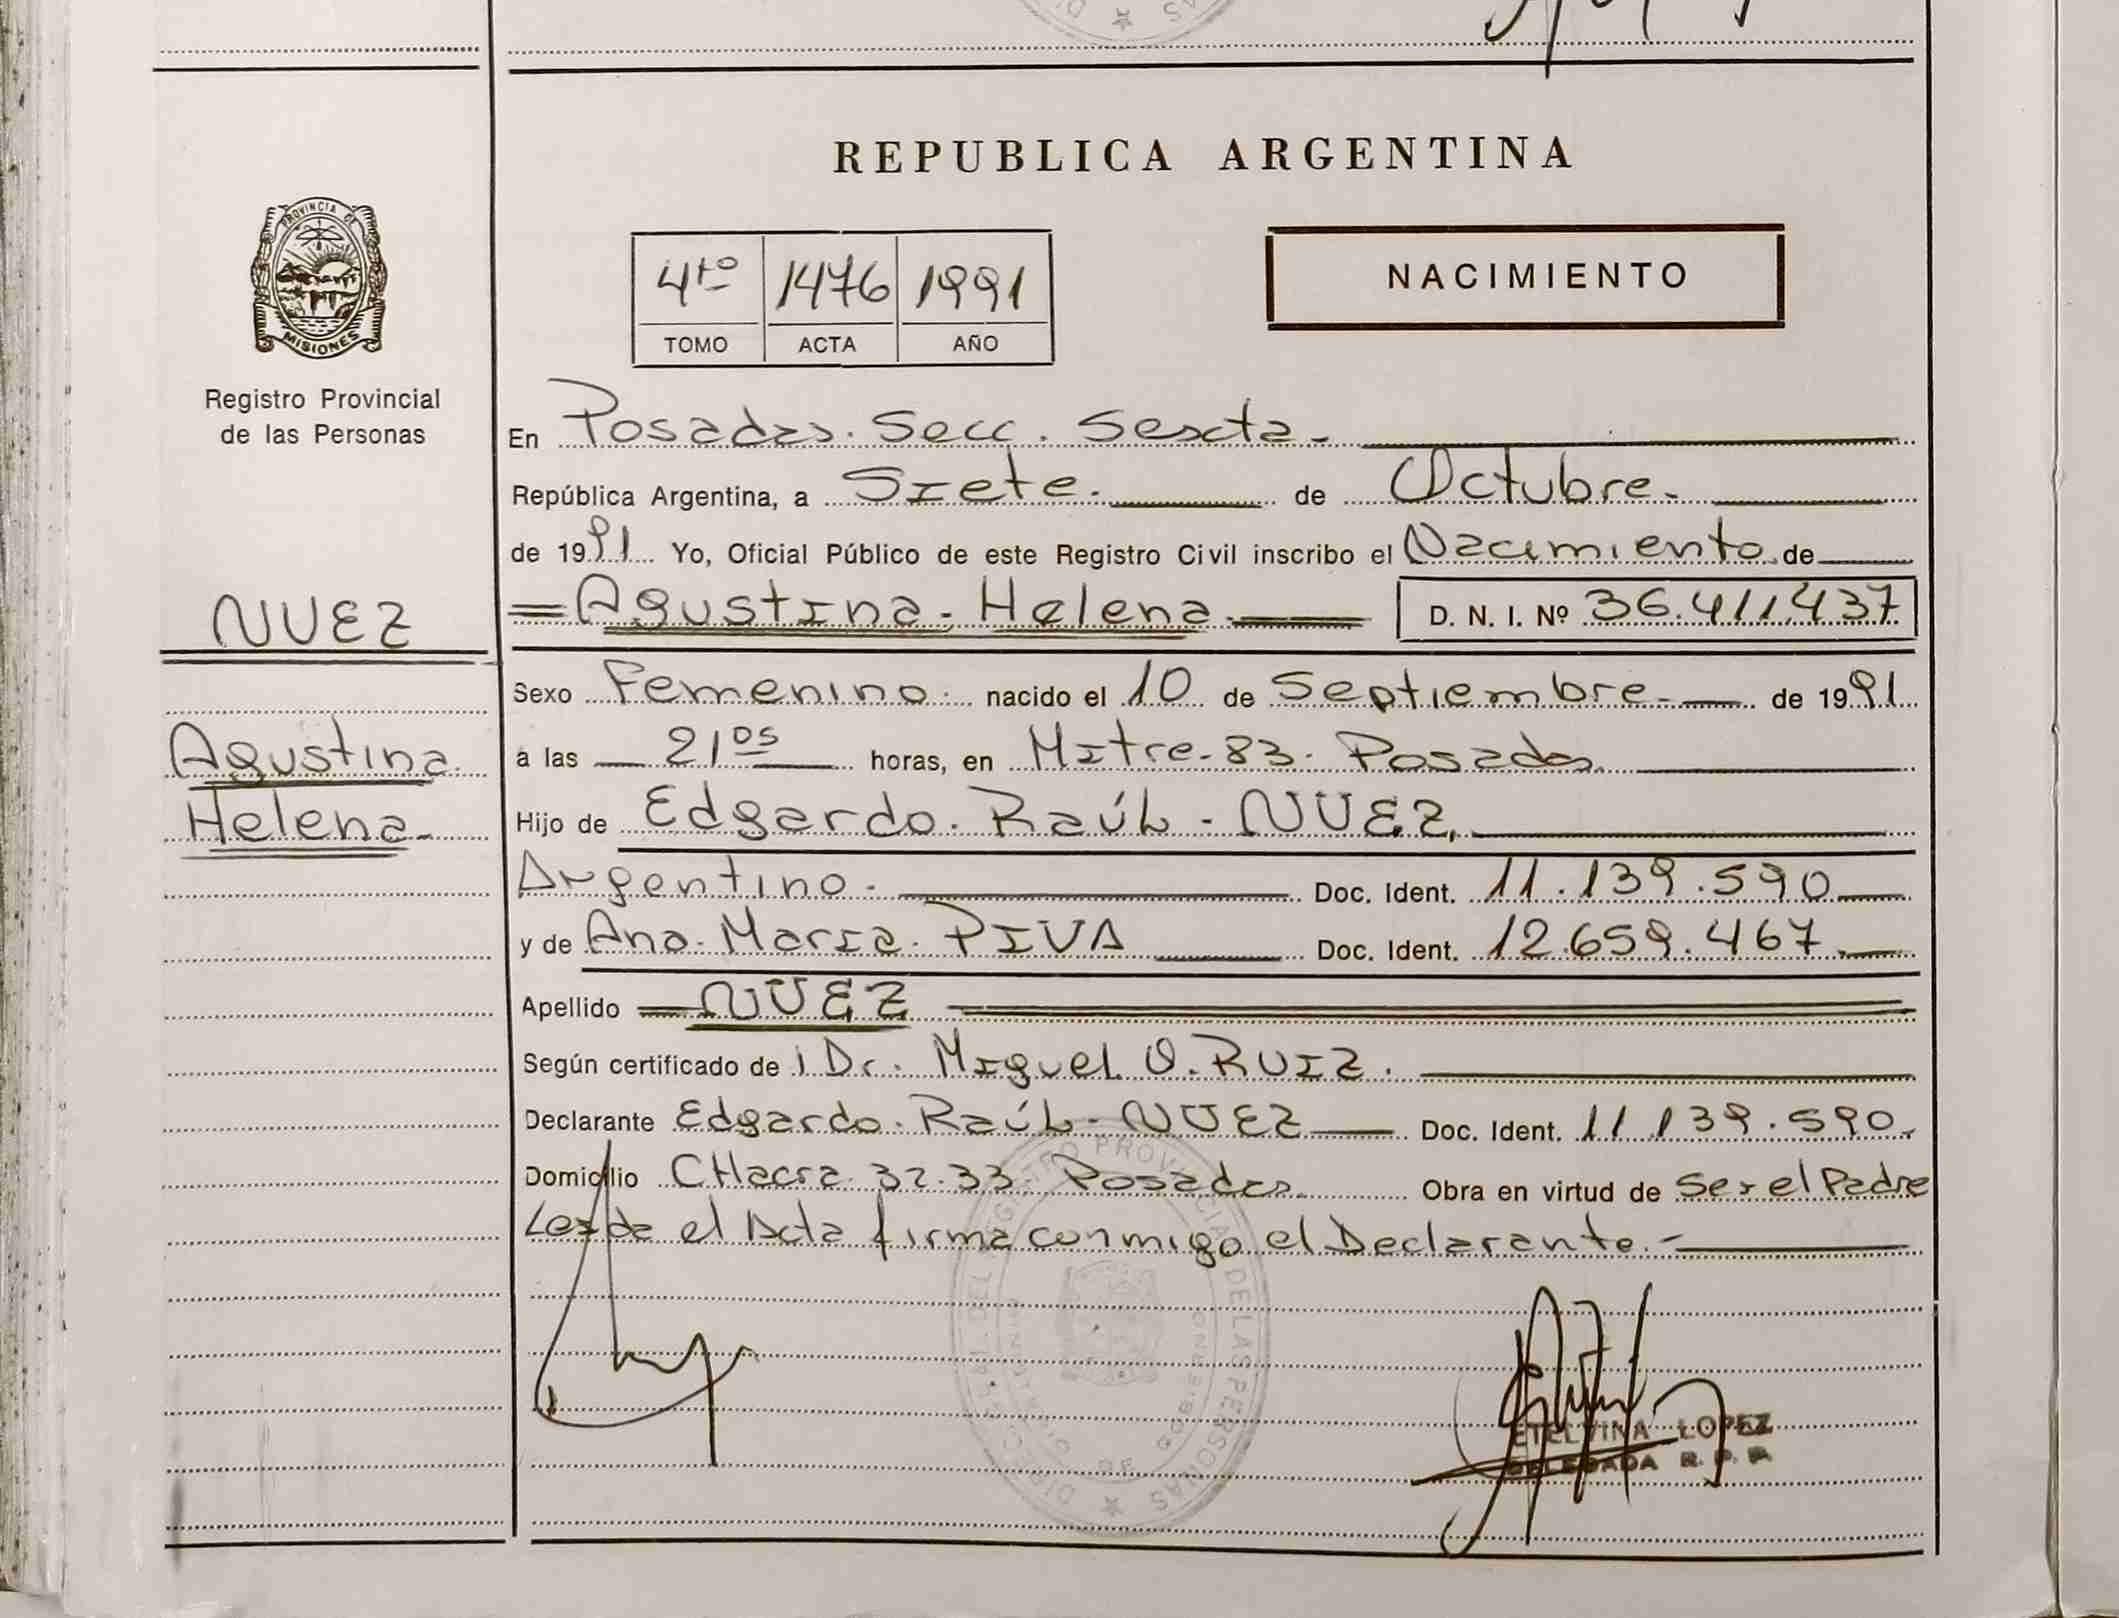 REPUBLICA ARGENTINA
PROVINCIA DE
MISIONES
Registro Provincial
de las Personas
4to 1476 1991
TOMO ACTA AÑO
NACIMIENTO
En Posadas. Secc. Sexta.
República Argentina, a Siete. de Octubre.
de 1991 Yo, Oficial Público de este Registro Civil inscribo el Nacimiento de
NUEZ
Agustina. Helena D. N. I. Nº 36.411.437
Sexo Femenino. nacido el 10 de Septiembre. de 1991
Agustina
a las 21os horas, en Mitre. 83. Posadas
Helena
Hijo de Edgardo. Raúl. NUEZ,
Argentino. Doc. Ident. 11.139.590
y de Ana. María. PIVA Doc. Ident. 12.659.467
Apellido NUEZ
Según certificado de Dr. Miguel O. RUIZ.
Declarante Edgardo. Raúl. NUEZ Doc. Ident. 11.139.590.
Domicilio CHacra 32.33. Posadas. Obra en virtud de Ser el Padre
Leida el Acta firma conmigo el Declarante.
ETELVINA LOPEZ
DELEGADA R. P. P.